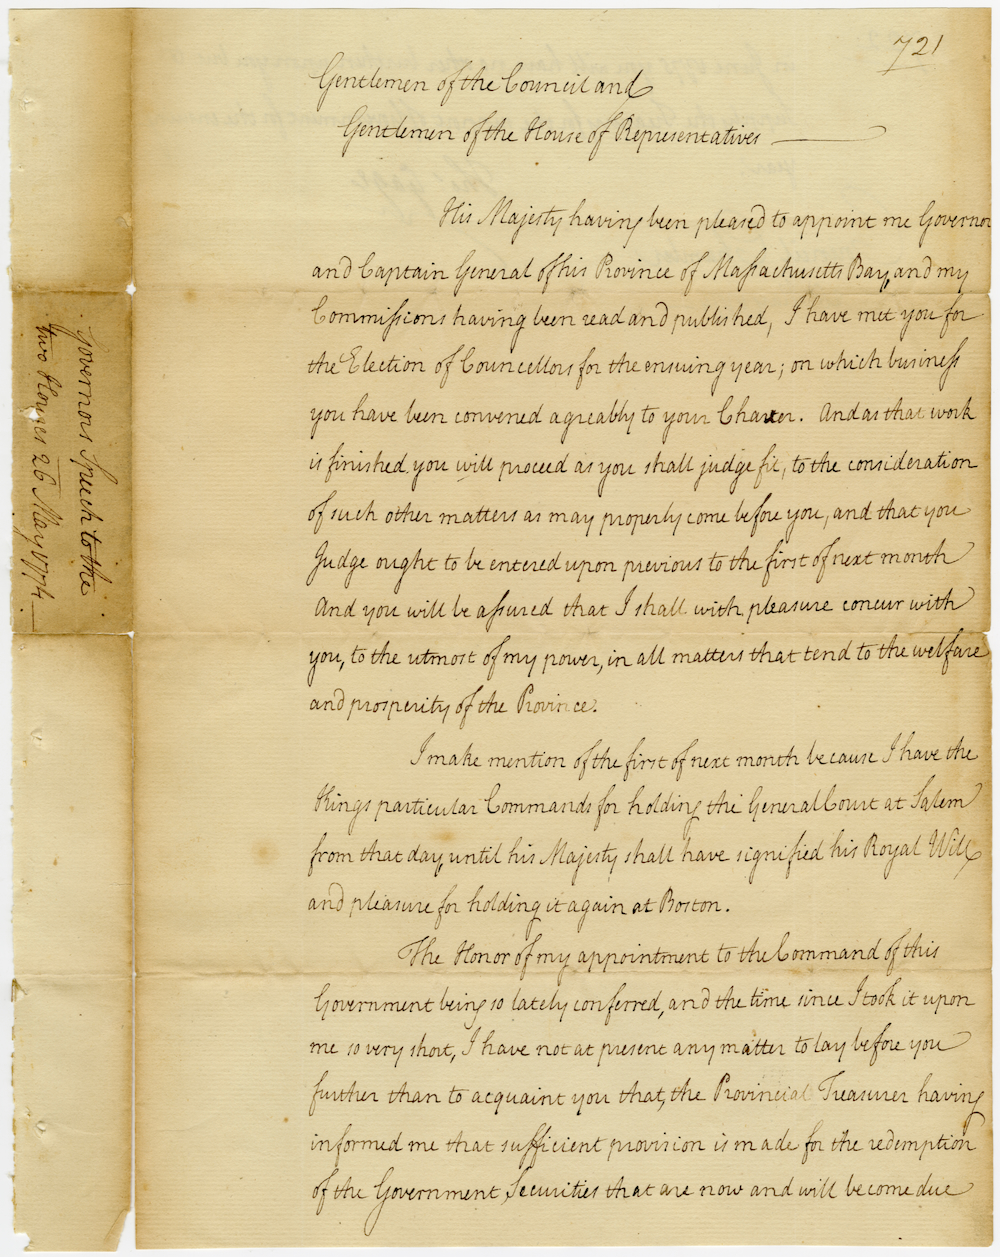 721
Gentlemen of the Council and
Gentlemen of the House of Representatives
His Majesty having been pleased to appoint me Governor
and Captain General of his Province of Massachusetts Bay, and my
Commissions having been read and published, I have met you for
the Election of Councellors for the ensuing year; on which business
you have been convened agreably to your Charter. And as that work
is finished you will proceed as you shall judge fit, to the consideration
of such other matters as may properly come before you, and that you
Judge ought to be entered upon previous to the first of next month
And you will be assured that I shall with pleasure concur with
you, to the utmost of my power, in all matters that tend to the welfare
and prosperity of the Province.
I make mention of the first of next month because I have the
Kings particular Commands for holding the General Court at Salem
from that day, until his Majesty shall have signified his Royal Will
and pleasure for holding it again at Boston.
The Honor of my appointment to the Command of this
Government being so lately conferred, and the time since I took it upon
me so very short, I have not at present any matter to lay before you
further than to acquaint you that, the Provincial Treasurer having
informed me that sufficient provision is made for the redemption
of the Government Securities that are now and will become due
Governors Speech to the
two Houses 26 May 1774